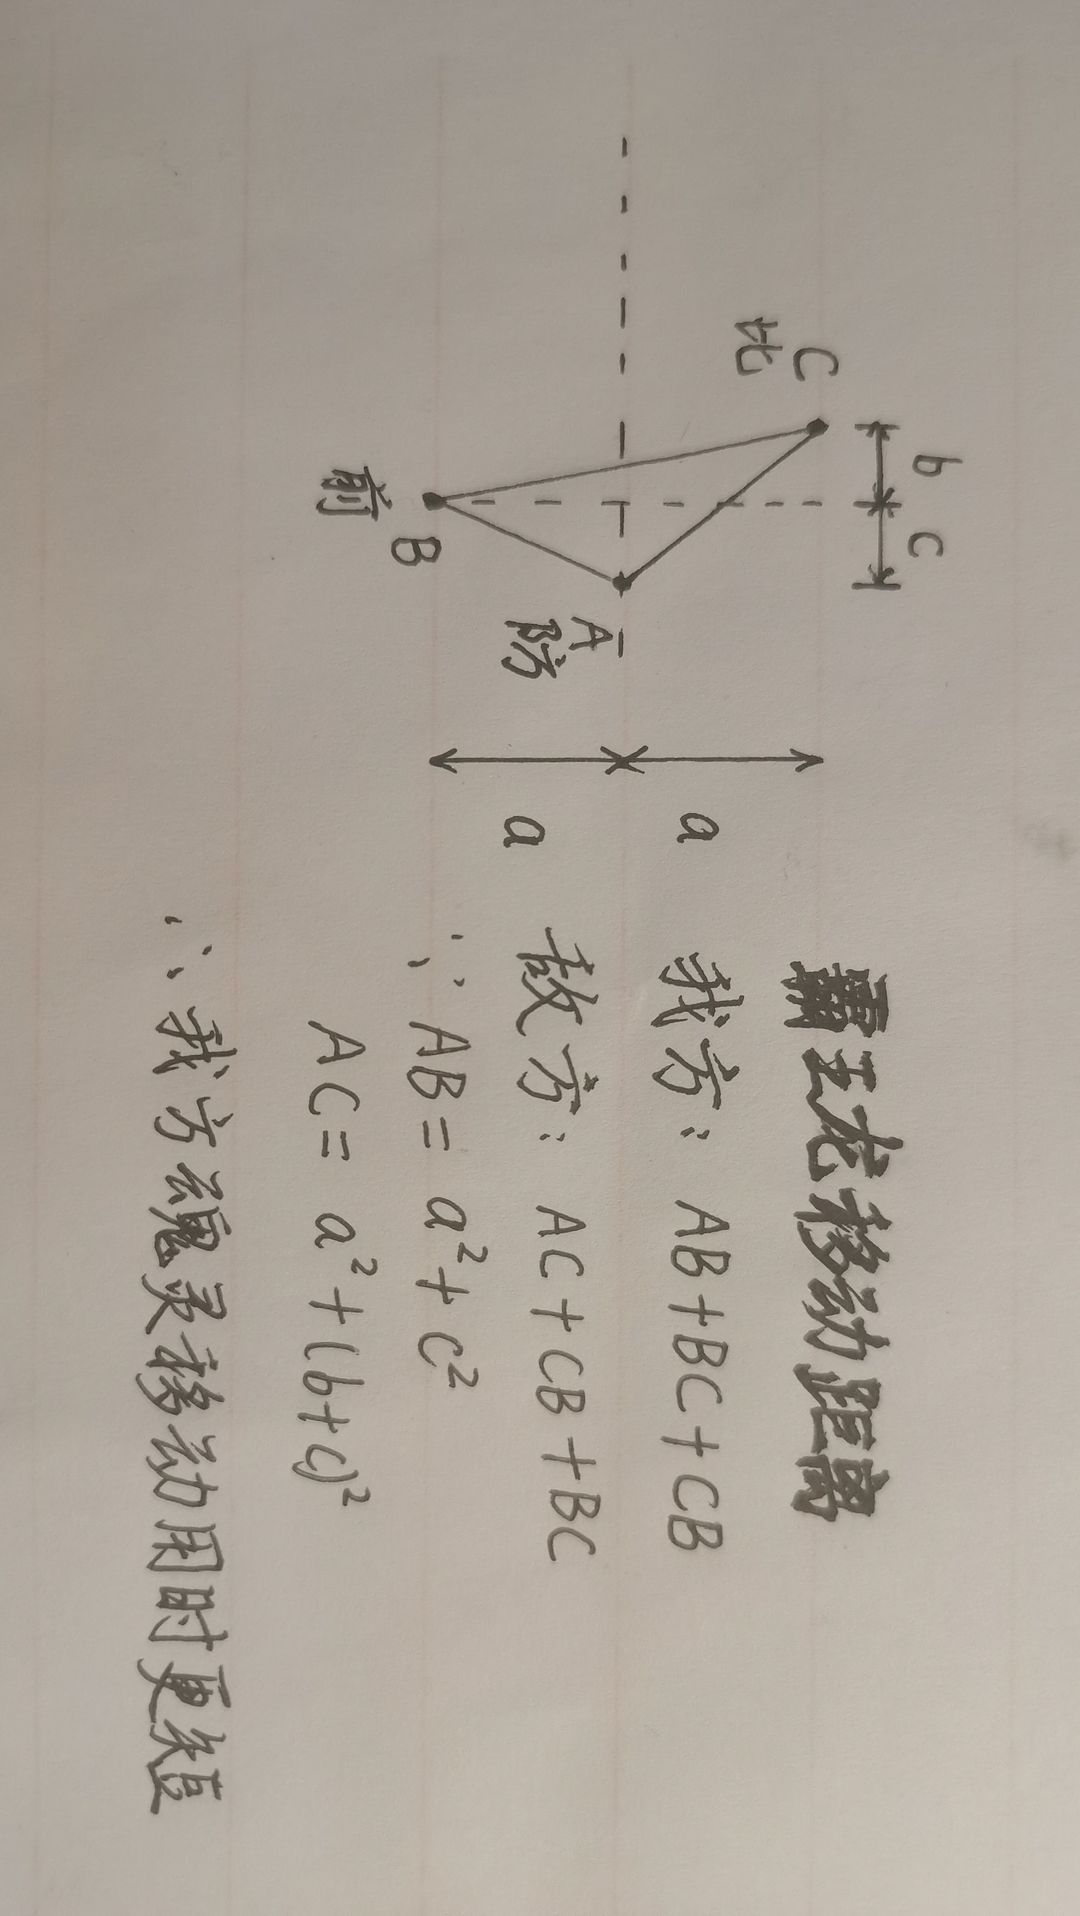 b c
霸王龙移动距离
C
比
a
我方: AB+BC+CB
A
防
a
敌方: AC+CB+BC
B
前
∵ AB= a²+c²
AC= a²+(b+c)²
∴ 我方魂灵移动用时更短